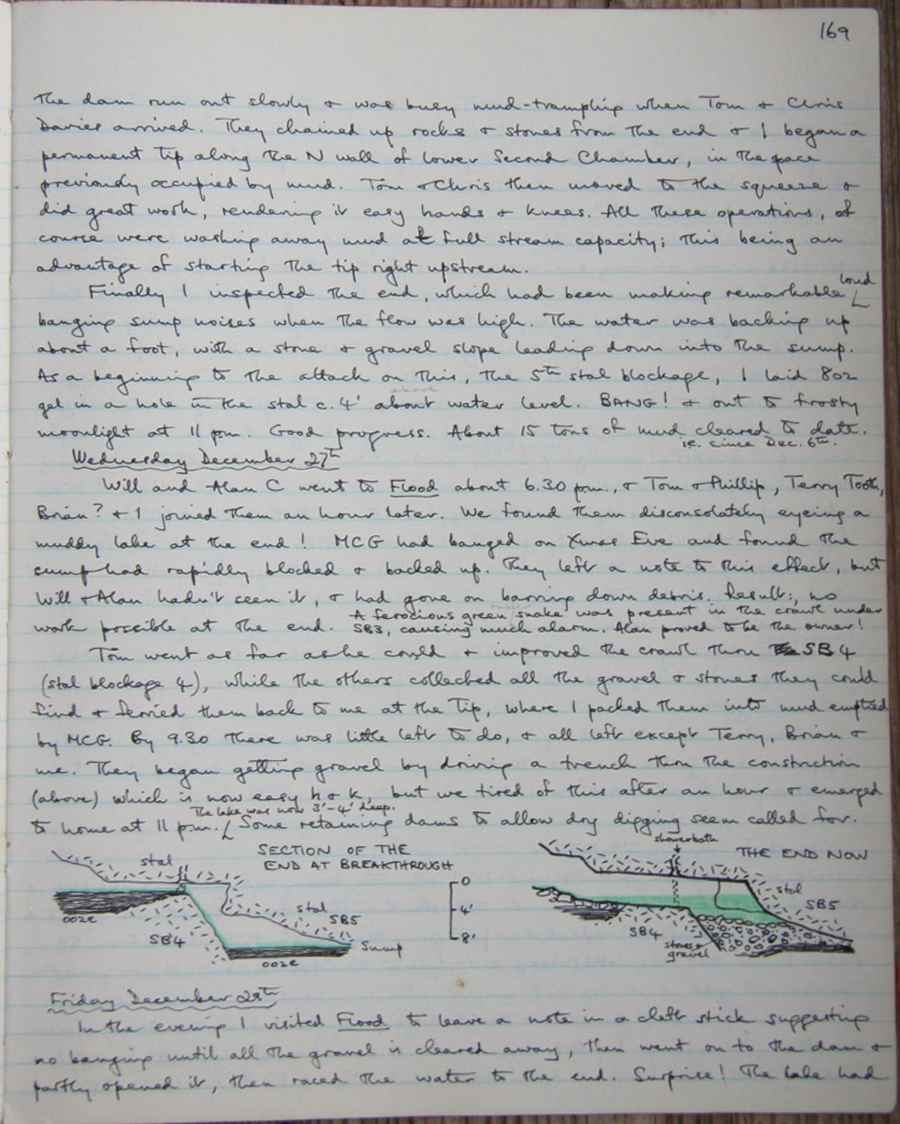 169
The dam run out slowly & was busy mud-trampling when Tom & Chris
Davies arrived. They chained up rocks & stones from the end & I began a
permanent tip along the N wall of lower Second Chamber, in the space
previously occupied by mud. Tom & Chris then moved to the squeeze &
did great work, rendering it easy hands & knees. All these operations, of
course were washing away mud at full stream capacity; this being an
advantage of starting the tip right upstream.
Finally I inspected the end, which had been making remarkable loud
banging sump noises when the flow was high. The water was backing up
about a foot, with a stone & gravel slope leading down into the sump.
As a beginning to the attack on this, the 5th stal blockage, I laid 8oz
gel in a hole in the stal c. 4' about water level. BANG! & out to frosty
moonlight at 11 pm. Good progress. About 15 tons of mud cleared to date.
ie. since Dec. 6th.
Wednesday December 27th
Will and Alan C went to Flood about 6.30 pm., & Tom & Phillip, Terry Tooth,
Brian? & I joined them an hour later. We found them disconsolately eyeing a
muddy lake at the end! MCG had banged on Xmas Eve and found the
sump had rapidly blocked & backed up. They left a note to this effect, but
Will & Alan hadn't seen it, & had gone on barring down debris. Result:, no
work possible at the end. A ferocious green snake was present in the crawl under
SB3, causing much alarm. Alan proved to be the owner!
Tom went as far as he could & improved the crawl thru SB4
(stal blockage 4), while the others collected all the gravel & stones they could
find & ferried them back to me at the Tip, where I packed them into mud emptied
by MCG. By 9.30 there was little left to do, & all left except Terry, Brian &
me. They began getting gravel by driving a trench thru the constriction
(above) which is now easy h & k, but we tired of this after an hour & emerged
The lake was now 3'-4' deep.
to home at 11 pm. Some retaining dams to allow dry digging seem called for.
SECTION OF THE
END AT BREAKTHROUGH
stal
ooze
SB4
stal
SB5
Sump
ooze
0
4'
8'
showerbath
THE END NOW
stal
SB5
SB4
stones &
gravel
Friday December 29th
In the evening I visited Flood to leave a note in a cleft stick suggesting
no banging until all the gravel is cleared away, then went on to the dam &
partly opened it, then raced the water to the end. Surprise! The lake had